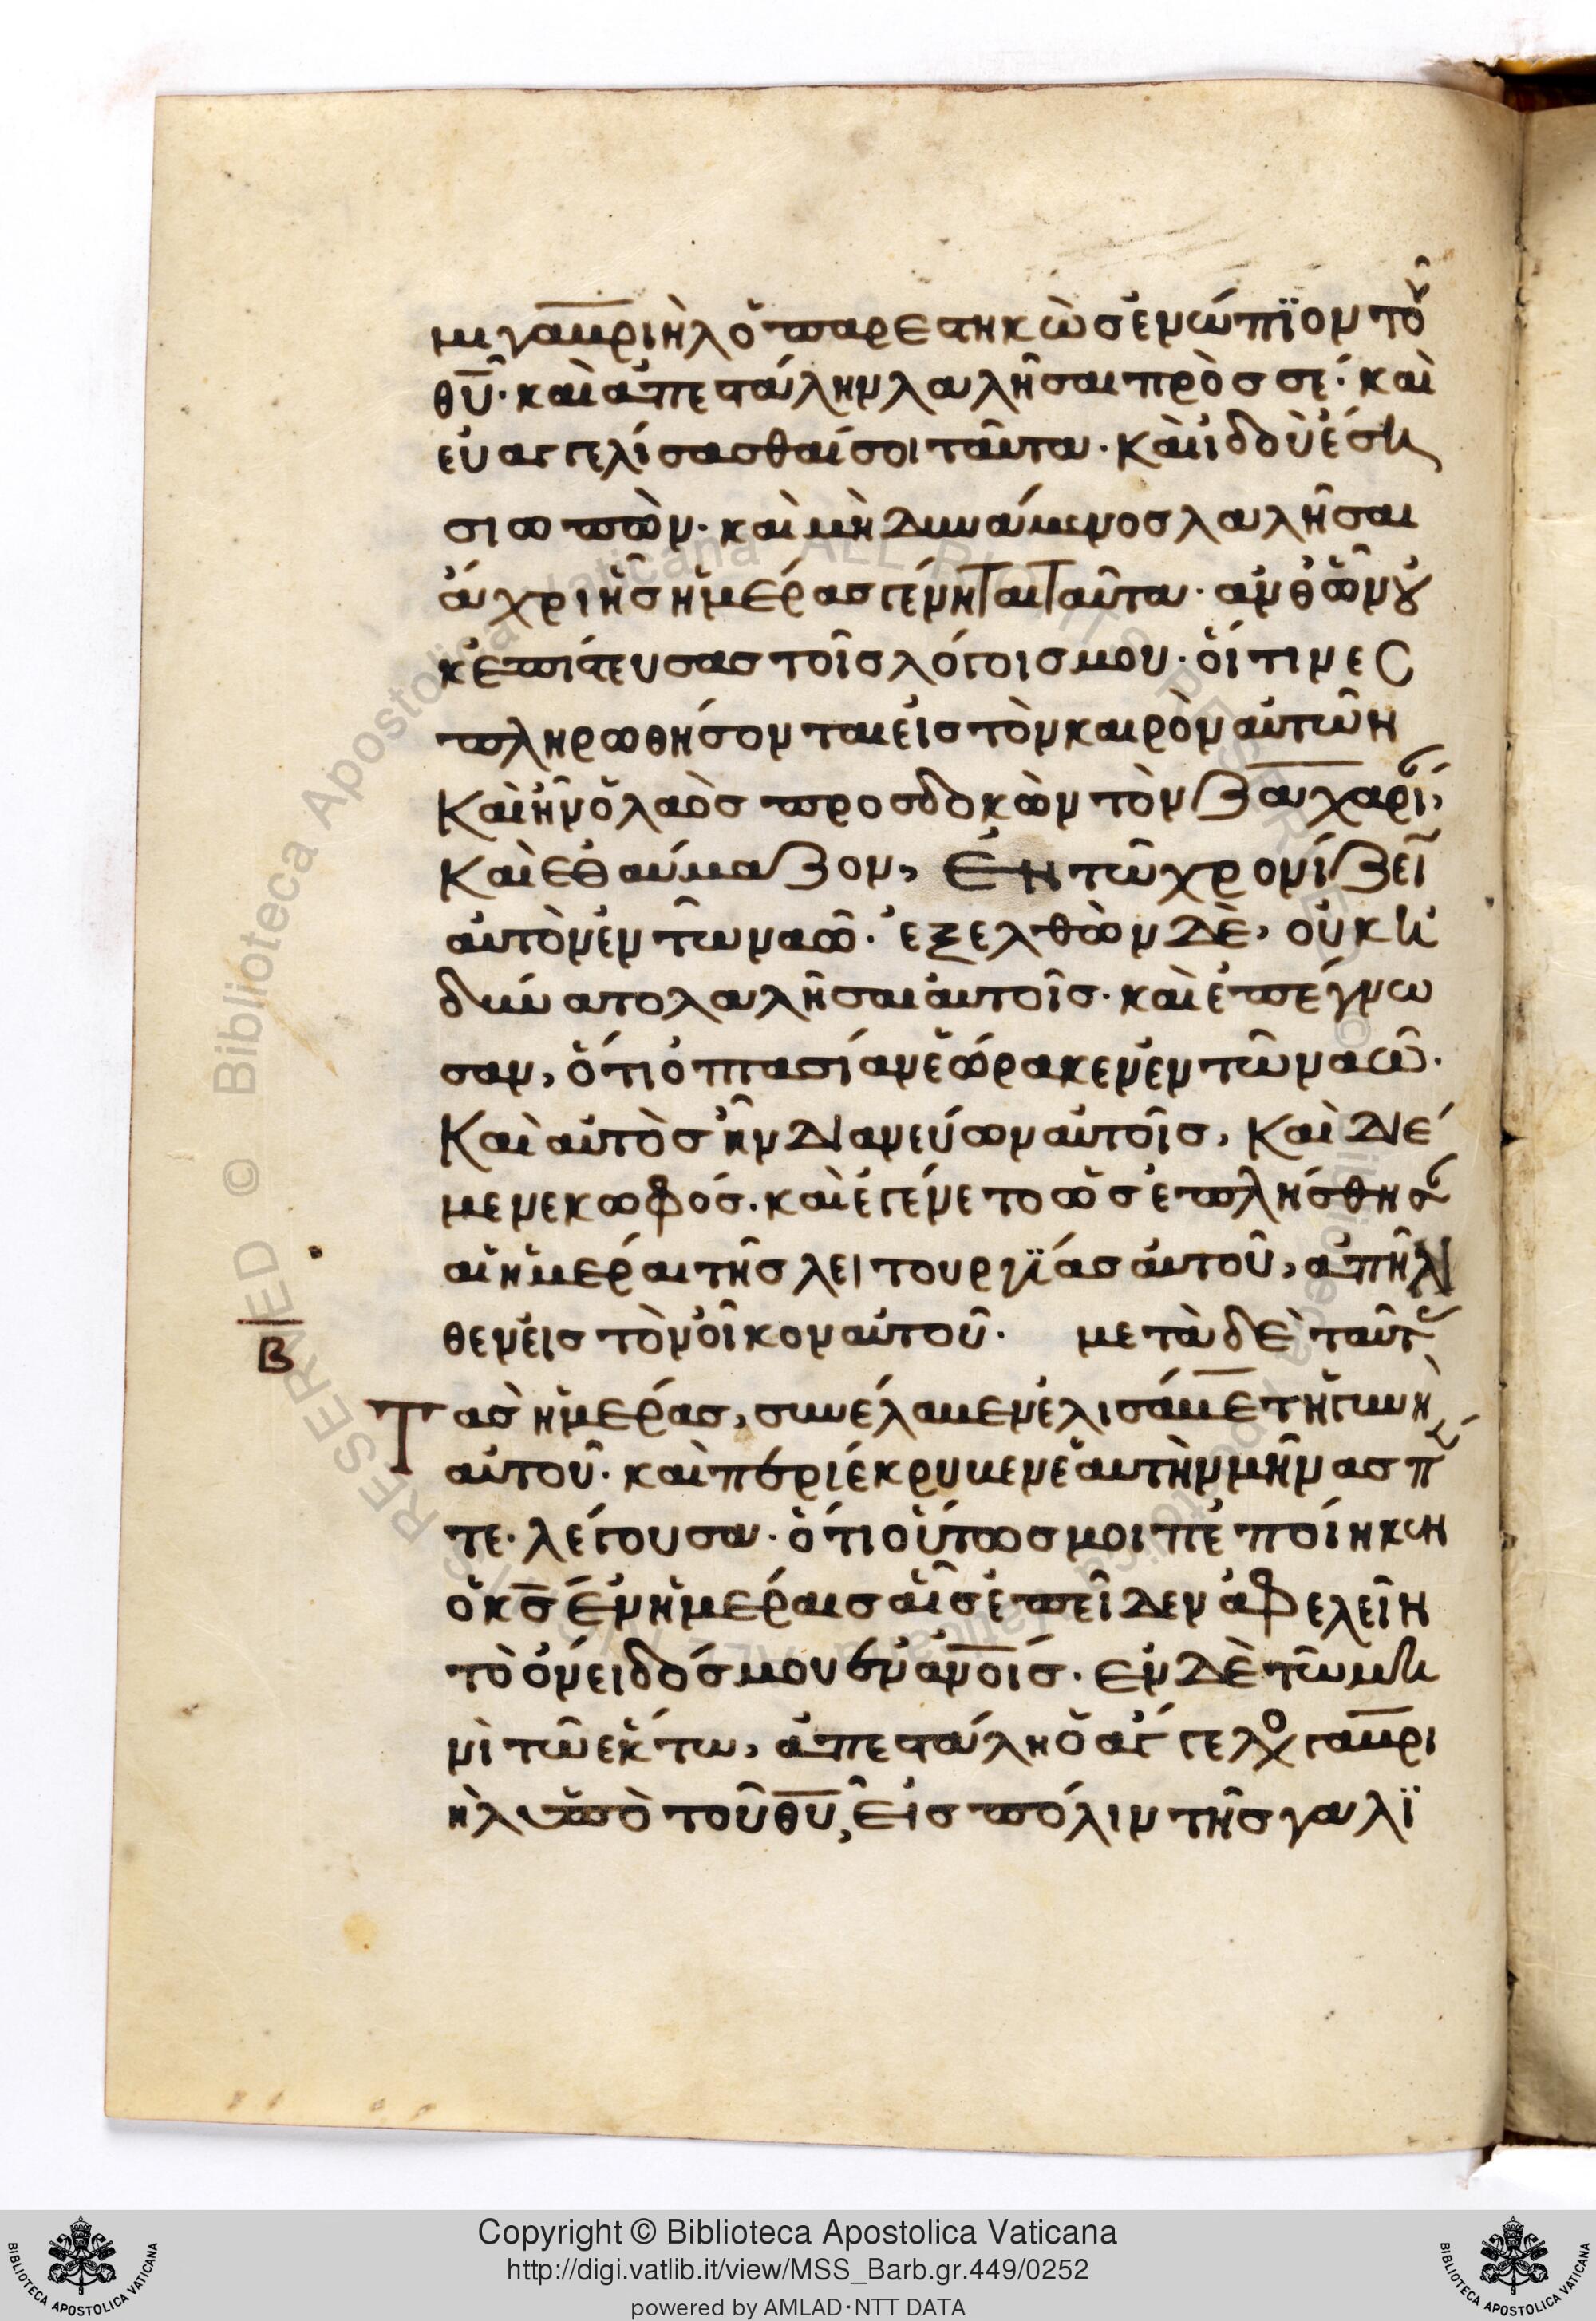 μι γαβριὴλ ὁ παρεστηκὼς ἐνώπϊον τοῦ
θ̅υ̅· καὶ ἀπεστάλην λαλῆσαι πρὸσ σέ· καὶ
εὐαγγελίσασθαί σοι ταῦτα· Καὶ ἰδοὺ ἔσῃ
σιωπῶν· καὶ μὴ δυνάμενοσ λαλῆσαι
ἄχρι ἧσ ἡμέρασ γένηται ταῦτα· ἀνθ ὧν οὐ
κ ἐπίστευσασ τοῖσ λόγοισ μου· οἵτινεσ
πληρωθήσονται εἰσ τὸν καιρὸν αὐτῶν
Καὶ ἦν ὁ λαὸσ προσδοκῶν τὸν ζαχαρί,
Καὶ ἐθαύμαζον, Ἐν τῶ χρονίζειν
αὐτὸν ἐν τῶ ναῶ· ἐξελθὼν δὲ, οὐκ ἠ
δύνατο λαλῆσαι αὐτοῖσ· καὶ ἐπέγνω
σαν, ὅτι ὀπτασίαν ἑώρακεν ἐν τῶ ναῶ·
Καὶ αὐτὸσ ἦν διανεύων αὐτοῖσ, Καὶ διέ
μενε κωφόσ· καὶ ἐγένετο ὡσ ἐπλήσθησαν
αἱ ἡμέραι τῆσ λειτουργϊάσ αὐτοῦ, ἀπῆλ
θεν εἰσ τὸν οἶκον αὐτοῦ· μετὰ δὲ ταύτ
B
Τασ ἡμέρασ, συνέλαβεν ἐλισάβετ ἡ γυνὴ
αὐτοῦ· καὶ περιέκρυβεν ἑαυτὴν μῆνασ πέν
τε· λέγουσα· ὅτι οὕτωσ μοι πεποίηκεν
ὁ κ̅σ̅ ἐν ἡμέραισ αἷσ ἐπεῖδεν ἀφελεῖν
τὸ ὄνειδόσ μου ἐν ἀ̅ν̅ο̅ι̅σ̅· ἐν δὲ τῶ μη
νὶ τῶ ἕκτω, ἀπεστάλη ὁ ἄγγελοσ γαβρι
ὴλ ὑπὸ τοῦ θ̅υ̅, Εἰσ πόλιν τῆσ γαλϊ
© Biblioteca Apostolica Vaticana ALL RIGHTS RESERVED
Copyright © Biblioteca Apostolica Vaticana
http://digi.vatlib.it/view/MSS_Barb.gr.449/0252
powered by AMLAD·NTT DATA
BIBLIOTECA APOSTOLICA VATICANA
BIBLIOTECA APOSTOLICA VATICANA